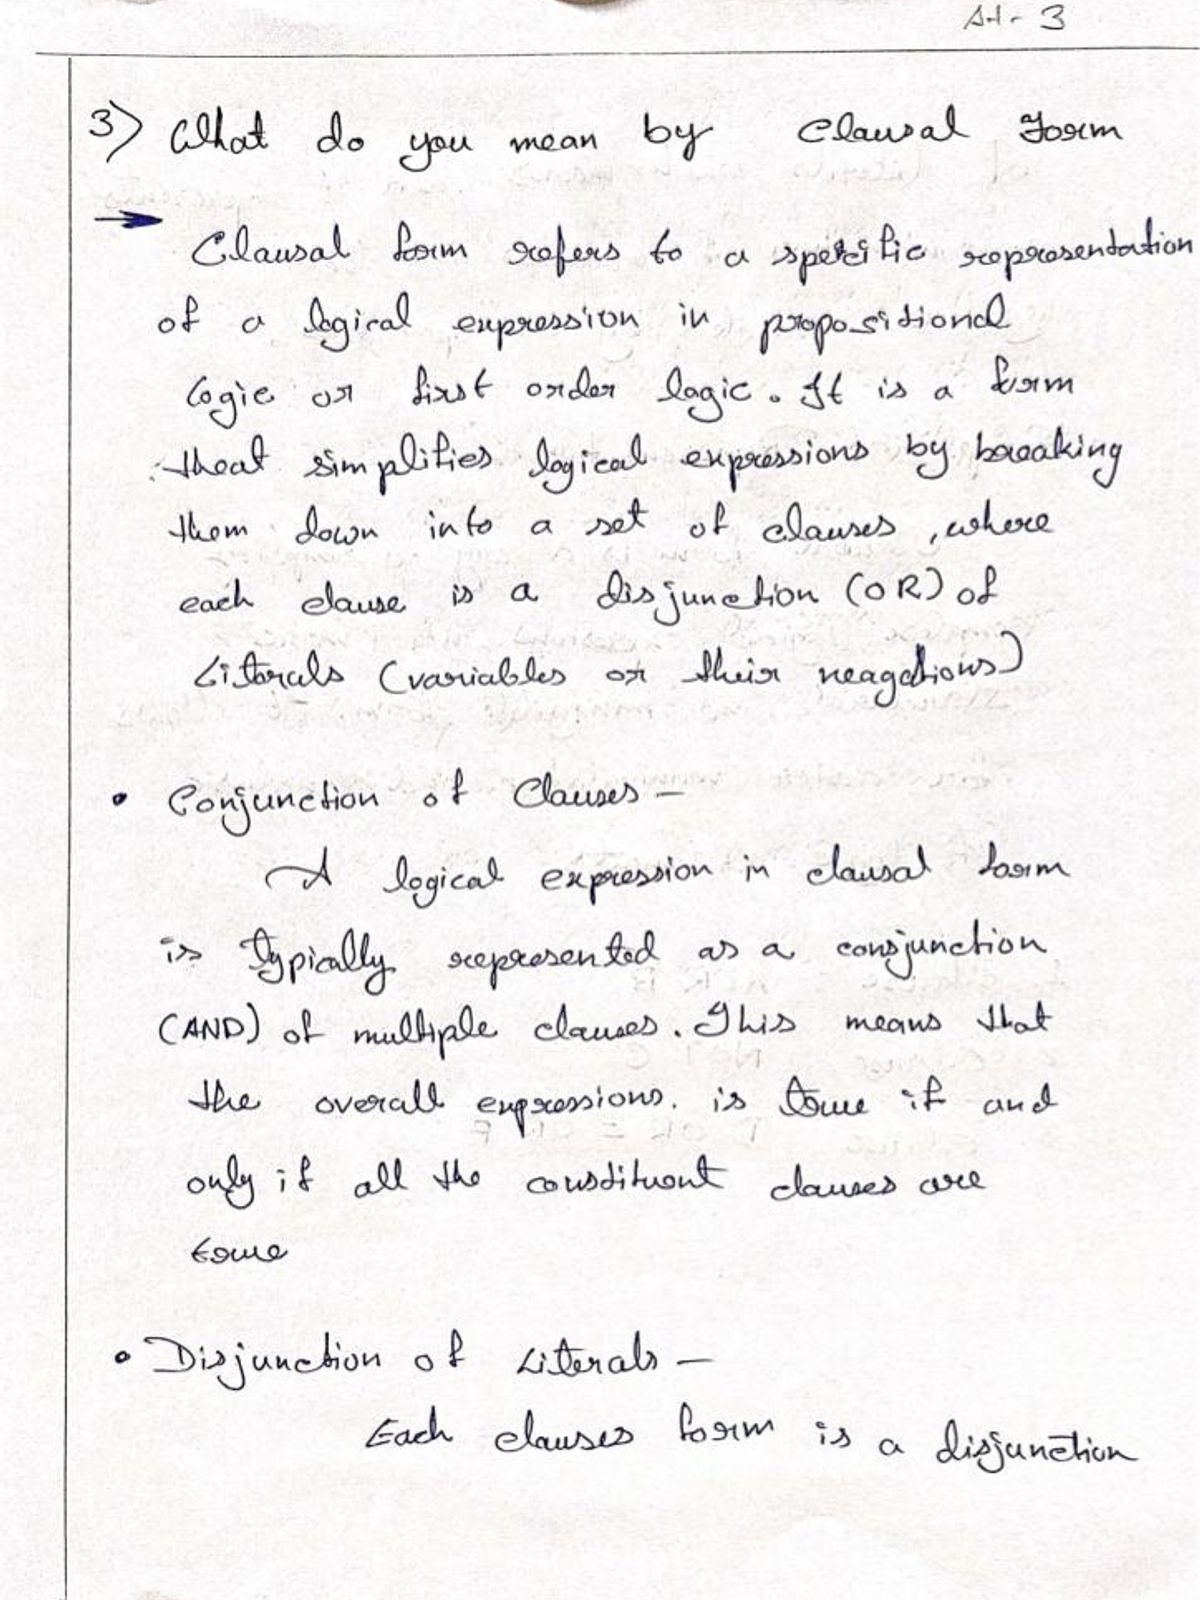 A1-3
3) What do you mean by Clausal Form
Clausal form refers to a specific representation
of a logical expression in propositional
logic or first order logic. It is a form
theat simplifies logical expressions by breaking
them down into a set of clauses, where
each clause is a disjunction (OR) of
Literals (variables or their neagations)
• Conjunction of Clauses -
A logical expression in clausal form
is typically represented as a conjunction
(AND) of multiple clauses. This means that
the overall expressions. is true if and
only if all the constituent clauses are
true
• Disjunction of Literals -
Each clauses form is a disjunction